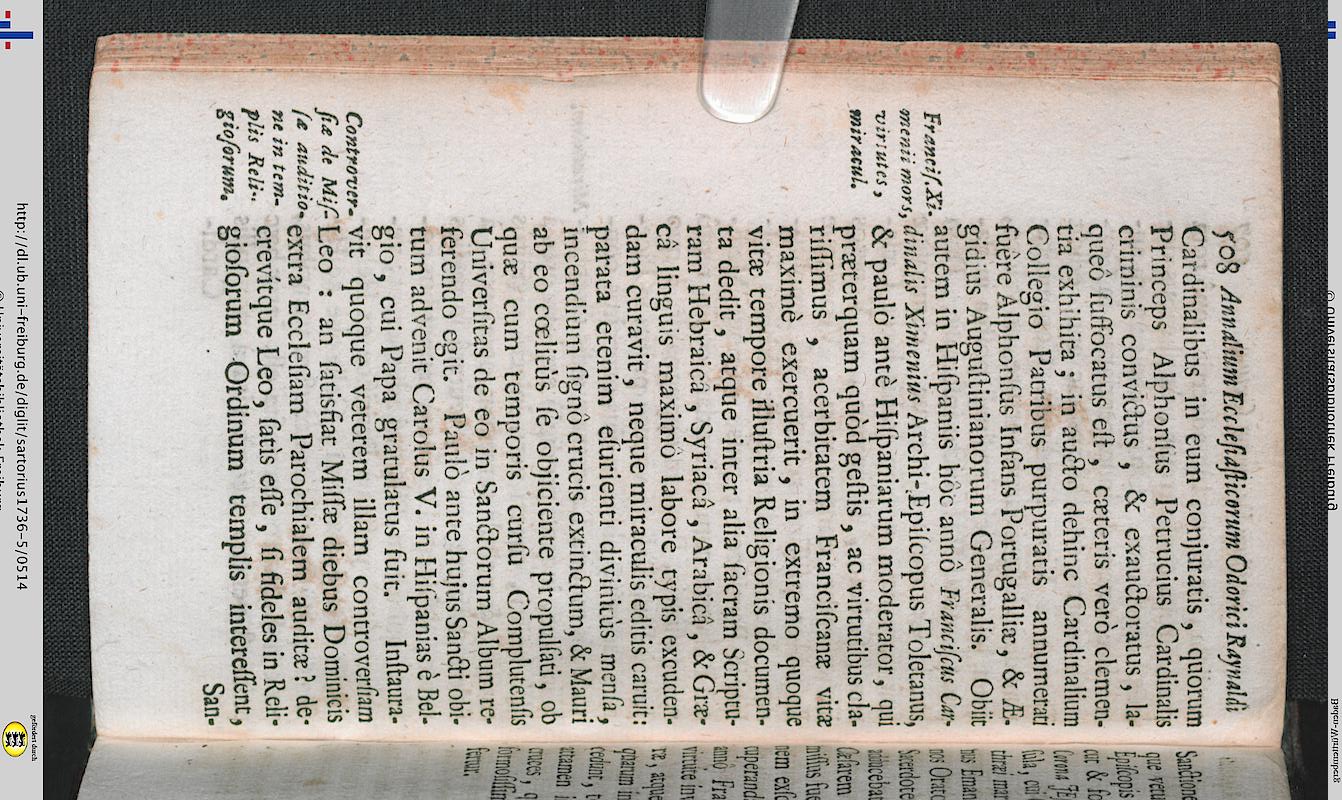 508 Annalium Ecclesiasticorum Odorici Raynaldi
Cardinalibus in eum conjuratis, quorum
Princeps Alphonſius Petrucius Cardinalis
criminis convictus, & exauctoratus, la-
queô ſuffocatus eſt, cæteris verò clemen-
tia exhibita; in aucto dehinc Cardinalium
Collegio Patribus purpuratis annumerati
fuêre Alphonſus Infans Portugalliæ, & Æ-
gidius Auguſtinianorum Generalis. Obiit
autem in Hiſpaniis hôc annô Franciſcus Car-
dinalis Ximenius Archi-Epiſcopus Toletanus,
& paulò antè Hiſpaniarum moderator, qui
præterquam quòd geſtis, ac virtutibus cla-
riſſimus, acerbitatem Franciſcanæ vitæ
maximè exercuerit, in extremo quoque
vitæ tempore illuſtria Religionis documen-
ta dedit, atque inter alia ſacram Scriptu-
ram Hebraicâ, Syriacâ, Arabicâ, & Græ-
câ linguis maximô labore typis excuden-
dam curavit, neque miraculis editis caruit:
parata etenim eſurienti divinitùs menſa,
incendium ſignô crucis extinctum, & Mauri
ab eo cœlitùs ſe objiciente propulſati, ob
quæ cum temporis curſu Complutenſis
Univerſitas de eo in Sanctorum Album re-
ferendo egit. Paulò ante hujus Sancti obi-
tum advenit Carolus V. in Hiſpanias è Bel-
gio, cui Papa gratulatus fuit. Inſtaura-
vit quoque veterem illam controverſiam
Leo: an ſatisfiat Miſſæ diebus Dominicis
extra Eccleſiam Parochialem auditæ? de-
crevitque Leo, ſatis eſſe, ſi fideles in Reli-
gioſorum Ordinum templis intereſſent,
San-
Franciſ. Xi-
menii mors,
virtutes,
miracul.
Controver-
ſiæ de Miſ-
ſæ auditio-
ne in tem-
plis Reli-
gioſorum.
Sanction
que vetu
Epiſcopis
cur & fo
nus Eman
nus Orato
Sacerdote
adducebat
Cæſarem
miſſus fue
nem exſc
cuperand
annô, Fra
virtute in
re, atque
quarum in
cedunt, t
attamen i
cruces, q
formoſiſſim
fertur.
http://dl.ub.uni-freiburg.de/diglit/sartorius1736-5/0514
© Universitätsbibliothek Freiburg
gefördert durch
Baden-Württemberg